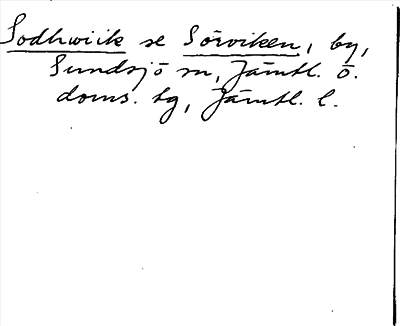 Sodhwiik se Sörviken, by,
Sundsjö sn, Jämtl. ö.
doms. tg, Jämtl. l.